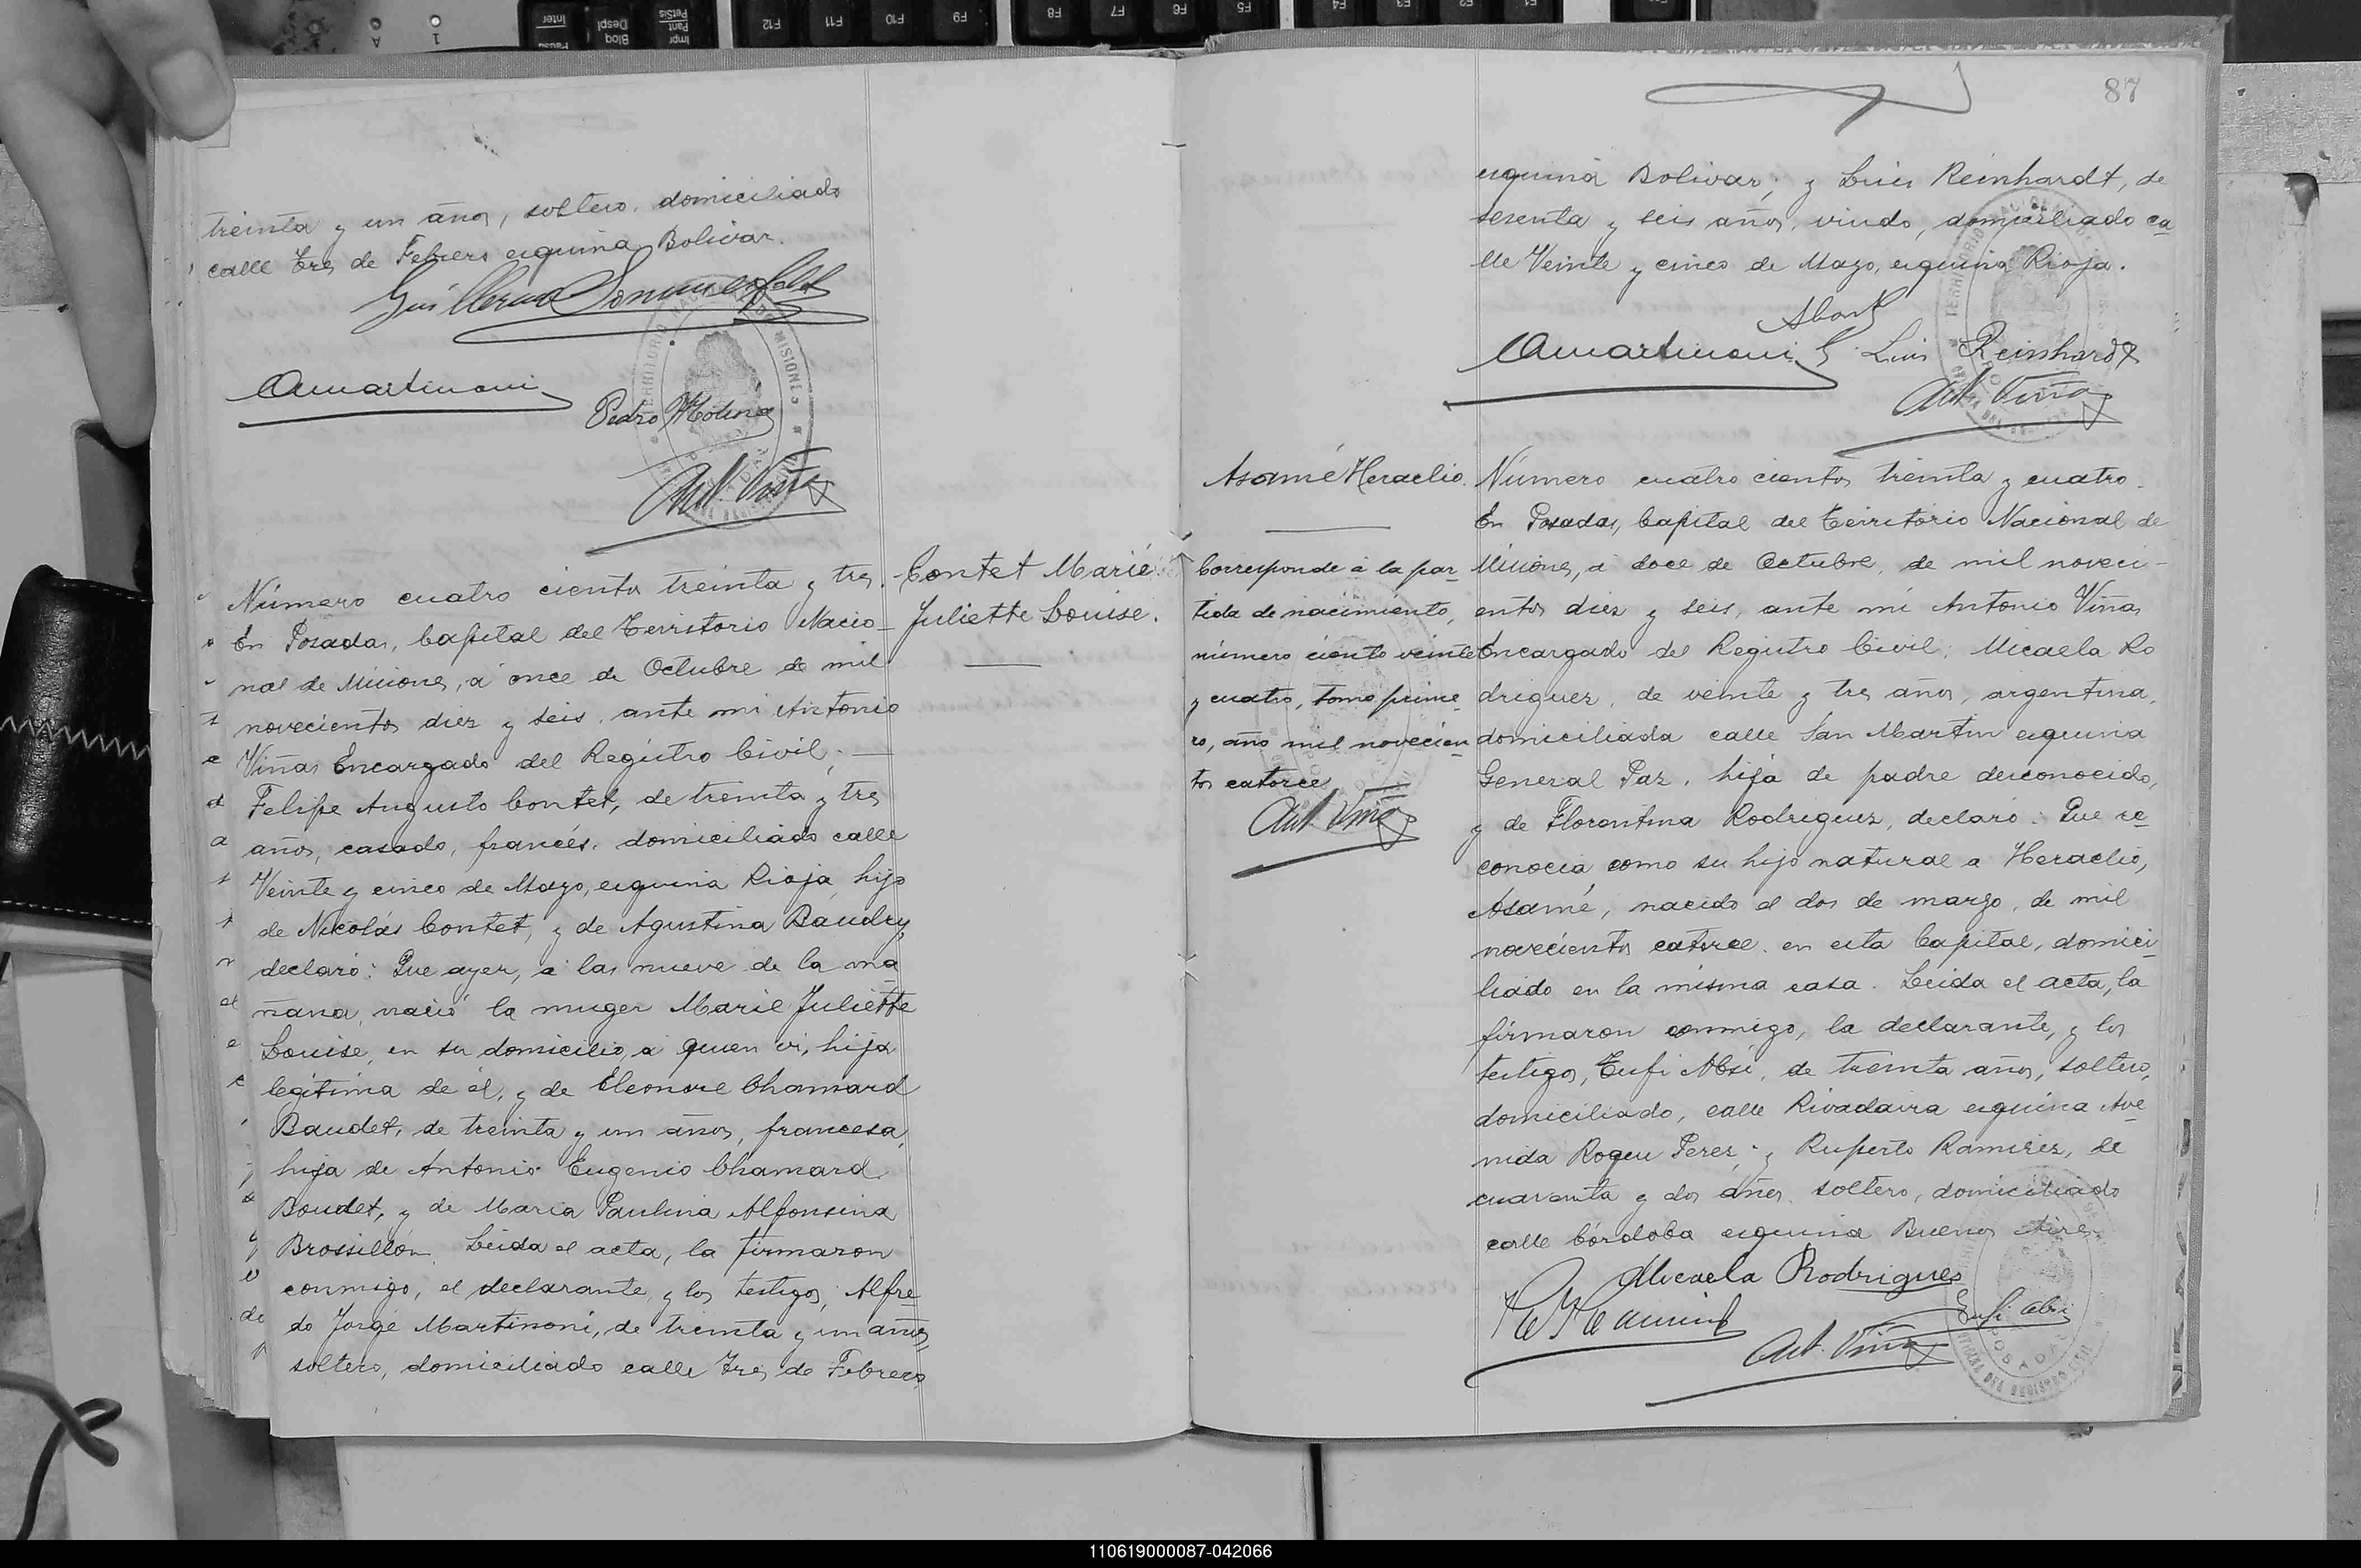 87
treinta y un años, soltero, domiciliado
calle Tres de Febrero esquina Bolivar.
Guillermo Sommerfeldt
AMartinoni
Pedro Molina
Ant. Viñas
Contet Marie
Juliette Louise.
Número cuatro cientos treinta y tres.
En Posadas, Capital del Territorio Nacio-
nal de Misiones, á once de Octubre de mil
novecientos diez y seis, ante mi Antonio
Viñas Encargado del Registro Civil;
Felipe Augusto Contet, de treinta y tres
años, casado, francés, domiciliado calle
Veinte y cinco de Mayo, esquina Rioja, hijo
de Nicolás Contet, y de Agustina Baudry,
declaró: Que ayer, á las nueve de la ma-
ñana, nació la muger Marie Juliette
Louise, en su domicilio, á quien vi, hija
legítima de él, y de Eleonore Chamard
Baudet, de treinta y un años, francesa,
hija de Antonio Eugenio Chamard
Boudet, y de Maria Paulina Alfonsina
Brossillón. Leida el acta, la firmaron
conmigo, el declarante, y los testigos, Alfre-
do Jorge Martinoni, de treinta y un años,
soltero, domiciliado calle Tres de Febrero
esquina Bolivar; y Luis Reinhardt, de
sesenta y seis años, viudo, domiciliado ca-
lle Veinte y cinco de Mayo, esquina Rioja.
AMartinoni
Luis Reinhardt
Ant. Viñas
Asamé Heraclio.
Corresponde á la par-
tida de nacimiento,
número ciento veinte
y cuatro, tomo prime-
ro, año mil novecien-
tos catorce
Ant. Viñas
Número cuatro cientos treinta y cuatro.
En Posadas, Capital del Territorio Nacional de
Misiones, á doce de Octubre, de mil noveci-
entos diez y seis, ante mi Antonio Viñas
Encargado del Registro Civil; Micaela Ro
driguez, de veinte y tres años, argentina,
domiciliada calle San Martin esquina
General Paz, hija de padre desconocido,
y de Florentina Rodriguez, declaró: Que re-
conocia como su hijo natural a Heraclio,
Asamé, nacido el dos de marzo, de mil
novecientos catorce, en esta Capital, domici-
liado en la misma casa. Leida el acta, la
firmaron conmigo, la declarante, y los
testigos, Tufi Absi, de treinta años, soltero,
domiciliado, calle Rivadavia esquina Ave-
nida Roque Perez; y Ruperto Ramirez, de
cuarenta y dos años, soltero, domiciliado
calle Córdoba esquina Buenos Aires.
Micaela Rodrigues
Tufi Absi
Ant. Viñas
110619000087-042066